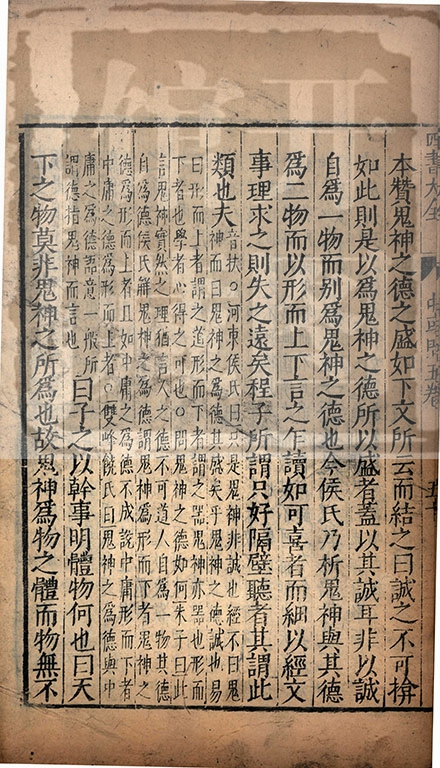 本贊鬼神之德之盛如下文所云而結之曰誠之不可揜
如此則是以為鬼神之德所以盛者蓋以其誠耳非以誠
自為一物而别為鬼神之德也今侯氏乃析鬼神與其德
為二物而以形而上下言之乍讀如可喜者而細以經文
事理求之則失之遠矣程子所謂只好隔壁聽者其謂此
類也夫
音扶○河東侯氏曰只是鬼神非誠也經不曰鬼
神而曰鬼神之德其盛矣乎鬼神之德誠也易
曰形而上者謂之道形而下者謂之器鬼神亦器也形而
下者也學者心得之可也○問鬼神之德如何朱子曰此
言鬼神實然之理猶言人之德不可道人自為一物其德
自為德侯氏解鬼神之德謂鬼神為形而下者鬼神之
德為形而上者且如中庸之為德不成說中庸形而下者
中庸之德為形而上者○雙峰饒氏曰鬼神之為德與中
庸之為德語意一般所
謂德指鬼神而言也
曰子之以幹事明體物何也曰天
下之物莫非鬼神之所為也故鬼神為物之體而物無不
四書大全